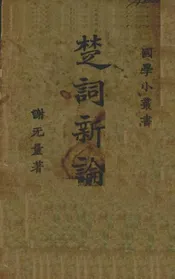 國學小叢書
楚詞新論
謝无量著